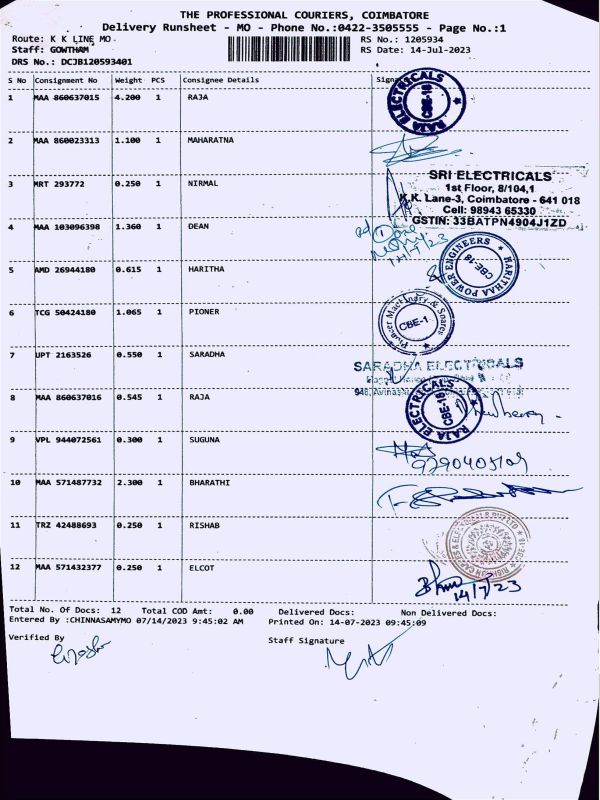 THE PROFESSIONAL COURIERS, COIMBATORE
Delivery Runsheet - MO - Phone No.:0422-3505555 - Page No.:1
Route: K K LINE MO
RS No.: 1205934
Staff: GOWTHAM
RS Date: 14-Jul-2023
DRS No.: DCJB120593401
S No Consignment No Weight PCS Consignee Details Signa
1 MAA 860637015 4.200 1 RAJA
RAJA ELECTRICALS CBE-18
2 MAA 860023313 1.100 1 MAHARATNA
SRI ELECTRICALS
1st Floor, 8/104,1
K.K. Lane-3, Coimbatore - 641 018
Cell: 98943 65330
GSTIN: 33BATPN4904J1ZD
3 MRT 293772 0.250 1 NIRMAL
4 MAA 103096398 1.360 1 DEAN
5 AMD 26944180 0.615 1 HARITHA
HARITHAA POWER ENGINEERS CBE-18
6 TCG 50424180 1.065 1 PIONER
Pioneer Machinery & Spares CBE-1
7 UPT 2163526 0.550 1 SARADHA
SARADHA ELECTRICALS
8 MAA 860637016 0.545 1 RAJA
RAJA ELECTRICALS CBE-18
9 VPL 944072561 0.300 1 SUGUNA
10 MAA 571487732 2.300 1 BHARATHI
11 TRZ 42488693 0.250 1 RISHAB
12 MAA 571432377 0.250 1 ELCOT
14/7/23
Total No. Of Docs: 12 Total COD Amt: 0.00 Delivered Docs: Non Delivered Docs:
Entered By :CHINNASAMYMO 07/14/2023 9:45:02 AM Printed On: 14-07-2023 09:45:09
Verified By
Staff Signature